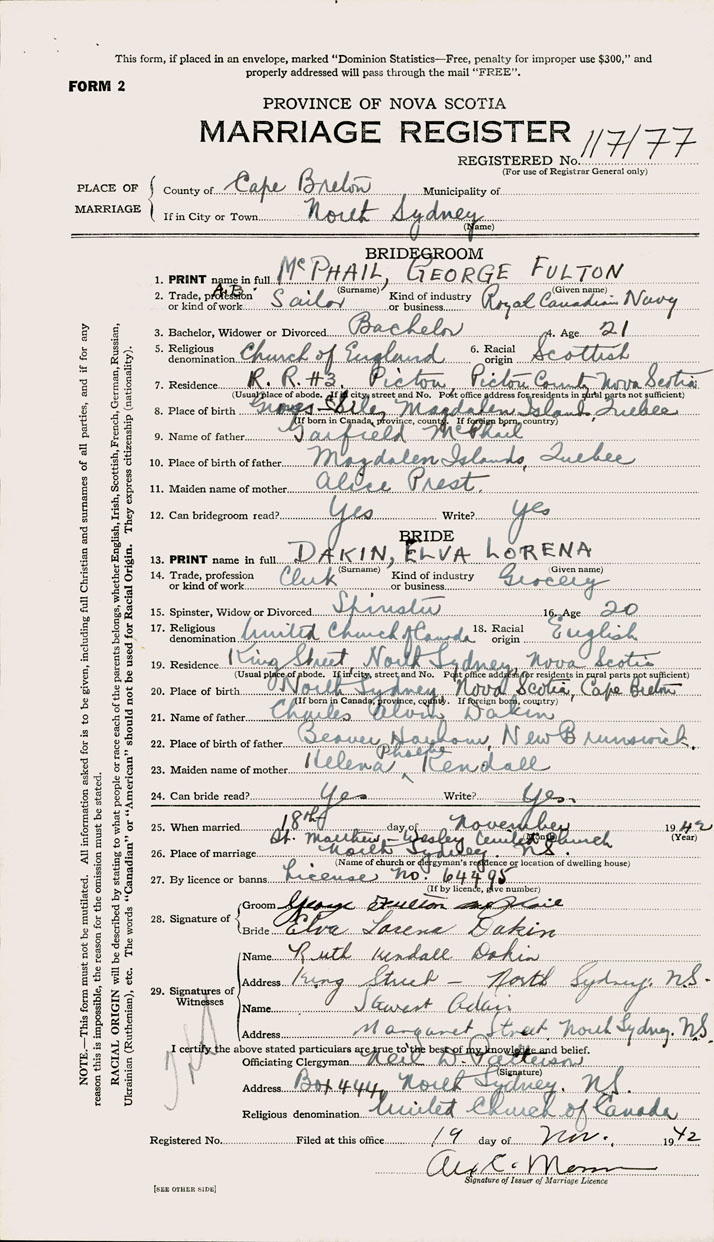 This form, if placed in an envelope, marked "Dominion Statistics—Free, penalty for improper use $300," and
properly addressed will pass through the mail "FREE".
FORM 2
PROVINCE OF NOVA SCOTIA
MARRIAGE REGISTER
REGISTERED No. 117/77
(For use of Registrar General only)
PLACE OF MARRIAGE
County of Cape Breton Municipality of
If in City or Town North Sydney
(Name)
BRIDEGROOM
1. PRINT name in full McPHAIL, GEORGE FULTON
(Surname) (Given name)
2. Trade, profession or kind of work A.B. Sailor Kind of industry or business Royal Canadian Navy
3. Bachelor, Widower or Divorced Bachelor 4. Age 21
5. Religious denomination Church of England 6. Racial origin Scottish
7. Residence R. R. #3, Pictou, Pictou County Nova Scotia
(Usual place of abode. If in city, street and No. Post office address for residents in rural parts not sufficient)
8. Place of birth Isle, Magdalen Islands, Quebec
(If born in Canada, province, county. If foreign born, country)
9. Name of father Garfield McPhail
10. Place of birth of father Magdalen Islands, Quebec
11. Maiden name of mother Alice Prest.
12. Can bridegroom read? Yes Write? Yes
BRIDE
13. PRINT name in full DAKIN, ELVA LORENA
(Surname) (Given name)
14. Trade, profession or kind of work Clerk Kind of industry or business Grocery
15. Spinster, Widow or Divorced Spinster 16. Age 20
17. Religious denomination United Church of Canada 18. Racial origin English
19. Residence King Street, North Sydney, Nova Scotia
(Usual place of abode. If in city, street and No. Post office address for residents in rural parts not sufficient)
20. Place of birth North Sydney, Nova Scotia, Cape Breton
(If born in Canada, province, county. If foreign born, country)
21. Name of father Charles Alvin Dakin
22. Place of birth of father Beaver Harbour, New Brunswick.
23. Maiden name of mother Helena Phoebe Kendall
24. Can bride read? Yes Write? Yes.
25. When married 18th day of November 1942
(Month) (Year)
St. Matthew-Wesley United Church
26. Place of marriage North Sydney. N.S.
(Name of church or clergyman's residence or location of dwelling house)
27. By licence or banns License no. 64495
(If by licence, give number)
28. Signature of
Groom George Fulton McPhail
Bride Elva Lorena Dakin
29. Signatures of Witnesses
Name Ruth Kendall Dakin
Address King Street - North Sydney. N.S.
Name Stewart
Address Margaret Street North Sydney. N.S.
I certify the above stated particulars are true to the best of my knowledge and belief.
Officiating Clergyman Neil D. Patterson
(Signature)
Address Box 444, North Sydney. N.S.
Religious denomination United Church of Canada
Registered No. Filed at this office 19 day of Nov. 1942
Signature of Issuer of Marriage Licence
[SEE OTHER SIDE]
NOTE.—This form must not be mutilated. All information asked for is to be given, including full Christian and surnames of all parties, and if for any
reason this is impossible, the reason for the omission must be stated.
RACIAL ORIGIN will be described by stating to what people or race each of the parents belongs, whether English, Irish, Scottish, French, German, Russian,
Ukrainian (Ruthenian), etc. The words "Canadian" or "American" should not be used for Racial Origin. They express citizenship (nationality).